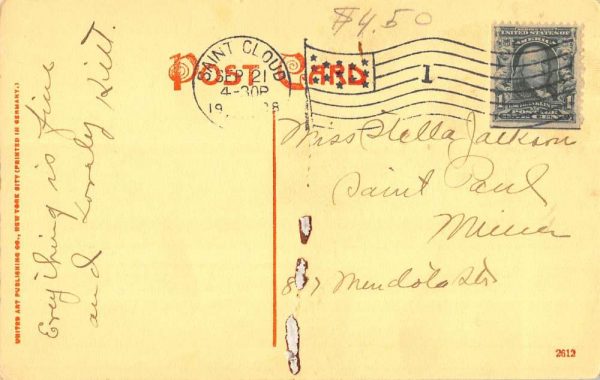 $4.50
POST CARD
SAINT CLOUD
SEP 21
4-30P
1
UNITED STATES OF
Miss Stella Jackson
Saint Paul
Minn
Mendota Str
Everything is fine
and Lovely
UNITED ART PUBLISHING CO., NEW YORK CITY (PRINTED IN GERMANY.)
2612